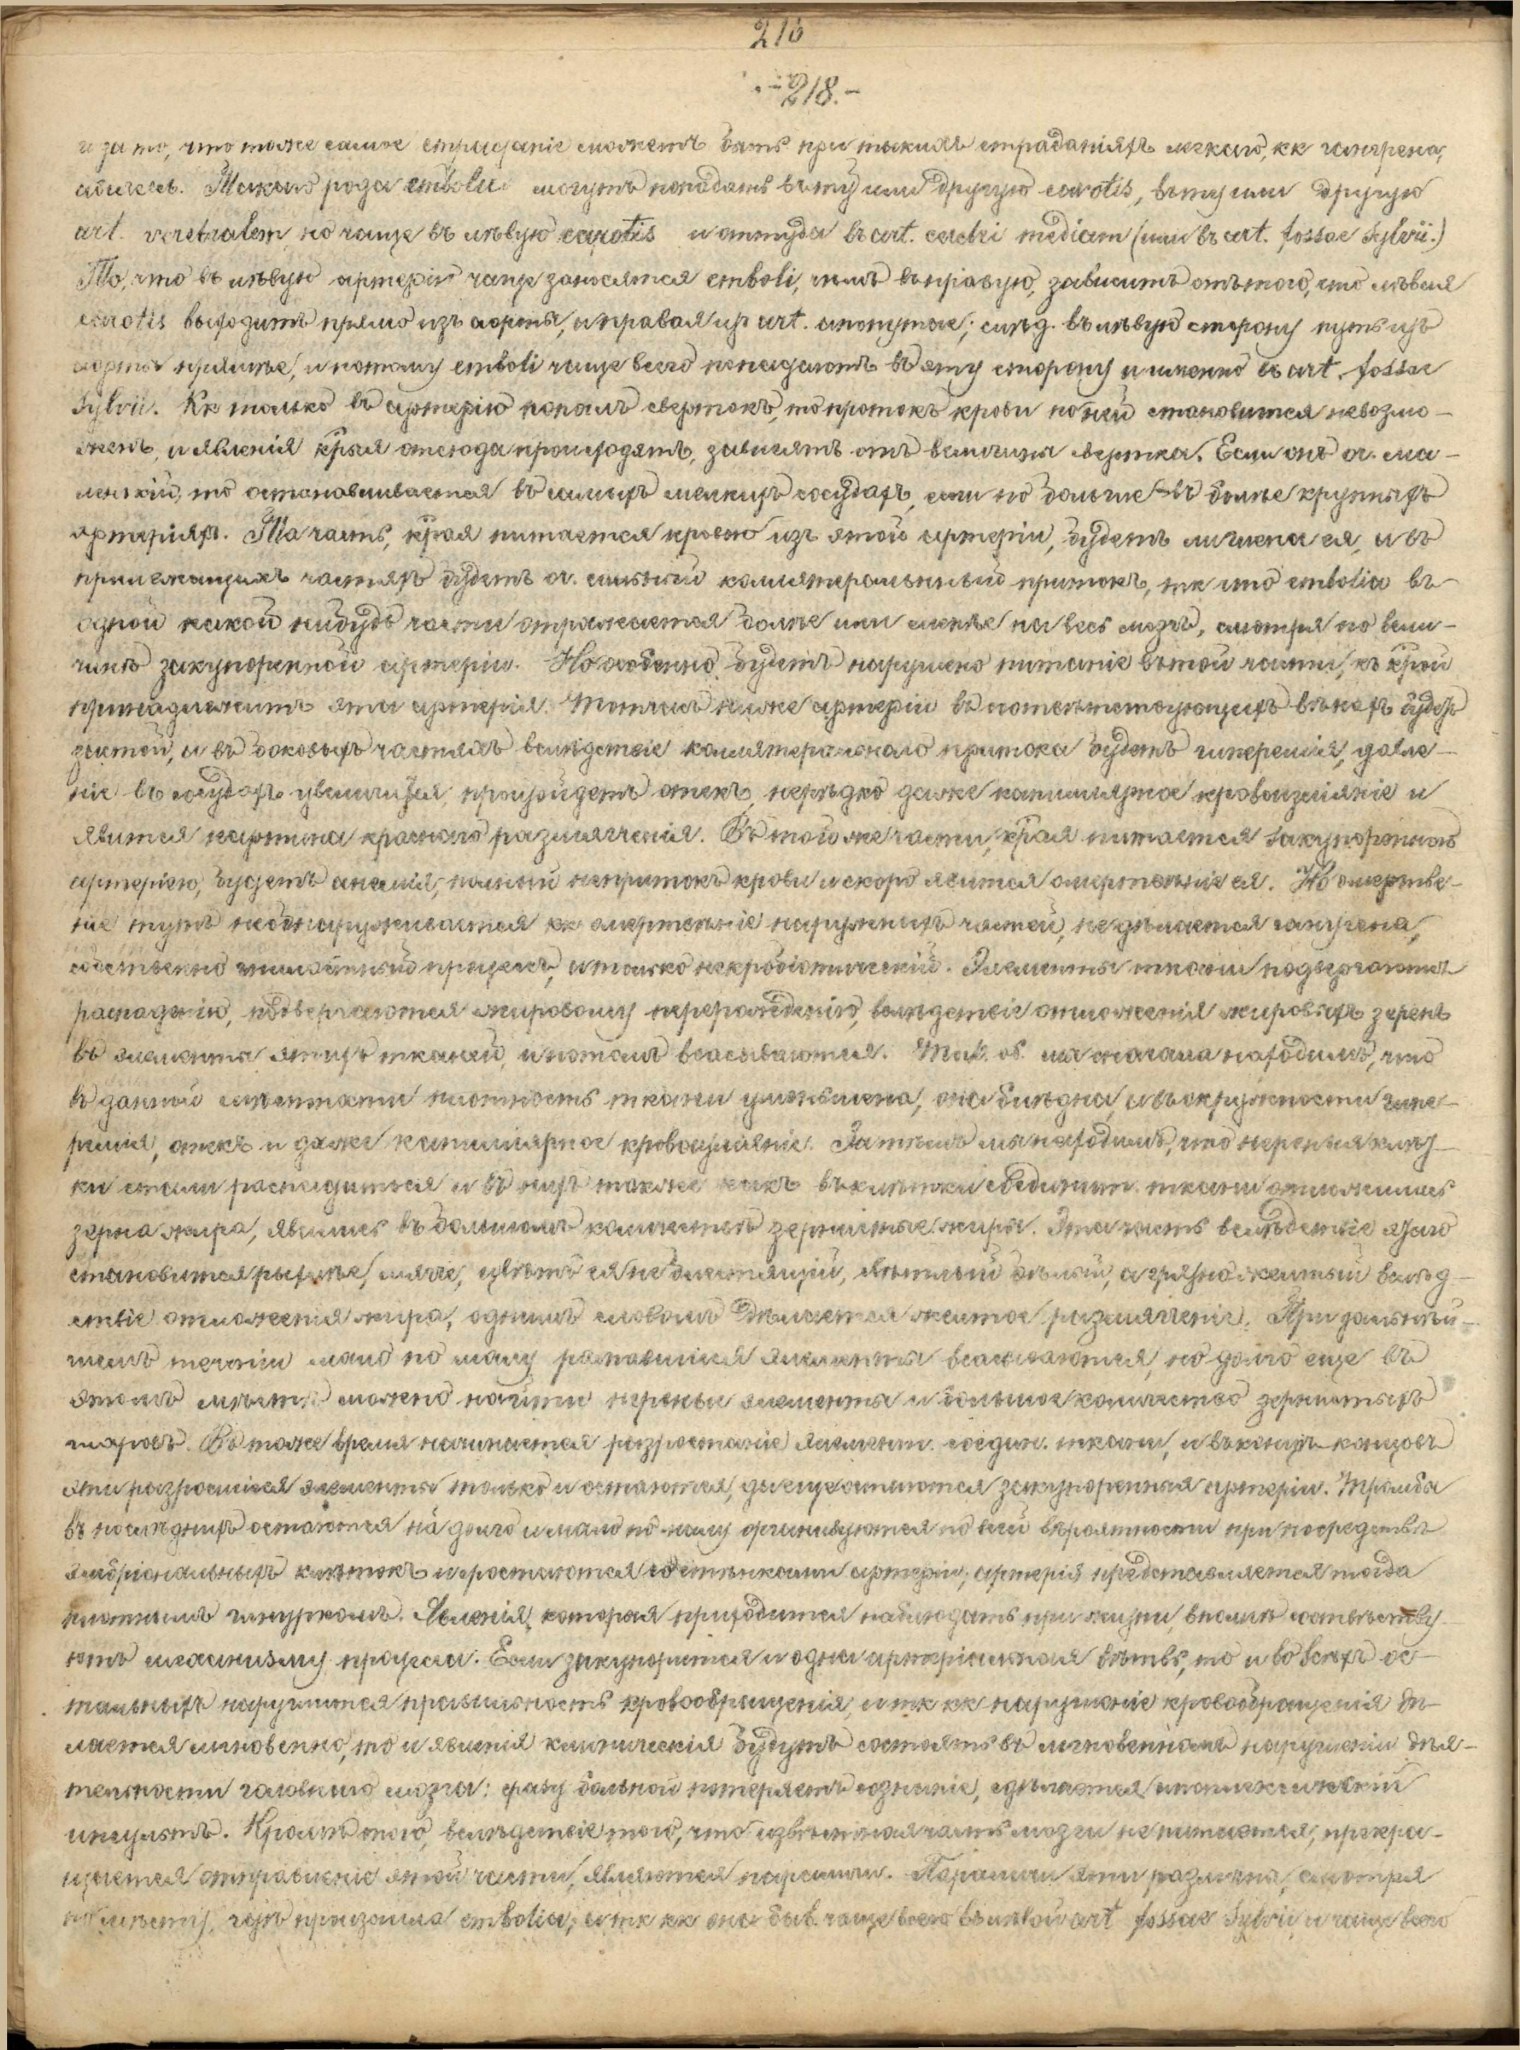 216
-218.-
и за то, что тоже самое страданіе можетъ быть при такихъ страданіяхъ легкаго, кк гангрена,
абсцессъ. Такого рода emboli могутъ попадать въ ту или другую carotis, въ ту или другую
art. vertebralem, но чаще въ лѣвую carotis и оттуда въ art. cerebri mediam (или въ art. fossae Sylvii.)
То, что въ лѣвую артерію чаще заносятся emboli, чѣмъ въ правую, зависитъ отъ того, что лѣвая
carotis выходитъ прямо изъ аорты, а правая изъ art. anonymae; слѣд. въ лѣвую сторону путь изъ
аорты прямѣе, и потому emboli чаще всего попадаютъ въ эту сторону и именно въ art. fossae
Sylvii. Кк только въ артерію попалъ свертокъ, то протокъ крови по ней становится невозмо-
женъ, и явленія кꙋрыя отсюда происходятъ, зависятъ отъ величины свертка. Если онъ оч. ма-
ленькій, то останавливается въ самыхъ мелкихъ сосудахъ, если по больше - въ болѣе крупныхъ
артеріяхъ. Та часть, края питается кровью изъ этой артеріи, будетъ лишена ея, и въ
прилежащихъ частяхъ будетъ оч. сильный коллятеральный притокъ, тк что embolia въ
одной какой нибудь части отражается болѣе или менѣе на весь мозгъ, смотря по вели-
чинѣ закупоренной артеріи. Но особенно будетъ нарушено питаніе въ той части, къ крой
принадлежитъ эта артерія. Тотчасъ ниже артеріи въ соотвѣтствующихъ венахъ будетъ
застой, и въ боковыхъ частяхъ вслѣдствіе коллятеральнаго притока будетъ гиперемія, давле-
ніе въ сосудахъ увеличится, произойдетъ отекъ, нерѣдко даже капиллярное кровоизліяніе и
явится картина краснаго размягченія. Въ той же части, края питается закупоренною
артеріею, будетъ анемія, полный непритокъ крови и скоро явится омертвѣніе ея. Но омертвѣ-
ніе тутъ не обнаруживается кк омертвѣніе наружныхъ частей, не дѣлается гангрена,
собственно гнилостный процессъ, а только некробіотическій. Элементы ткани подвергаются
распаденію, подвергаются жировому перерожденію, вслѣдствіе отложенія жировыхъ зеренъ
въ элементы этихъ тканей, и потомъ всасываются. Так. об. мы сначала находимъ, что
въ данной мѣстности плотность ткани уменьшена, она блѣдна, а въ окружности гипе-
ремія, отекъ и даже капиллярное кровоизліяніе. Затѣмъ мы находимъ, что нервныя клѣт-
ки стали распадаться и въ нихъ также какъ въ клѣтки соединит. ткани отложились
зерна жира, явились въ большомъ количествѣ зернистые шары. Эта часть вслѣдствіе этого
становится рыхлѣе, мягче, цвѣтъ ея не блестящій, свѣтлый бѣлый, а грязно желтый вслѣд-
ствіе отложенія жира, однимъ словомъ дѣлается желтое размягченіе. При дальнѣй-
шемъ теченіи мало по малу распавшіеся элементы всасываются, но долго еще въ
этомъ мѣстѣ можно найти нервные элементы и большое количество зернистыхъ
шаровъ. Въ тоже время начинается разростаніе элемент. соедин. ткани, и въ концѣ концовъ
эти разросшіеся элементы только и остаются, да еще остаются закупоренныя артеріи. Тромбы
въ послѣднихъ остаются на долго и мало по малу организуются по всей вѣроятности при посредствѣ
эмбріональныхъ клѣтокъ и сростаются со стѣнками артеріи; артерія представляется тогда
плотнымъ шнуркомъ. Явленія, которыя приходится наблюдать при жизни, вполнѣ соотвѣтству-
ютъ механизму процесса. Если закупорится и одна артеріальная вѣтвь, то и во всѣхъ ос-
тальныхъ нарушится правильность кровообращенія, и тк кк нарушеніе кровообращенія дѣ-
лается мгновенно, то и явленія клиническія будутъ состоять въ мгновенномъ нарушеніи дѣя-
тельности головнаго мозга: сразу больной потеряетъ сознаніе, сдѣлается апоплексическій
инсультъ. Кромѣ того, вслѣдствіе того, что извѣстная часть мозга не питается, прекра-
щается отправленіе этой части, являются параличи. Параличи эти различны, смотря
по мѣсту, гдѣ произошла embolia; и тк кк она быв. чаще всего въ лѣвой art fossae Sylvii и чаще всего